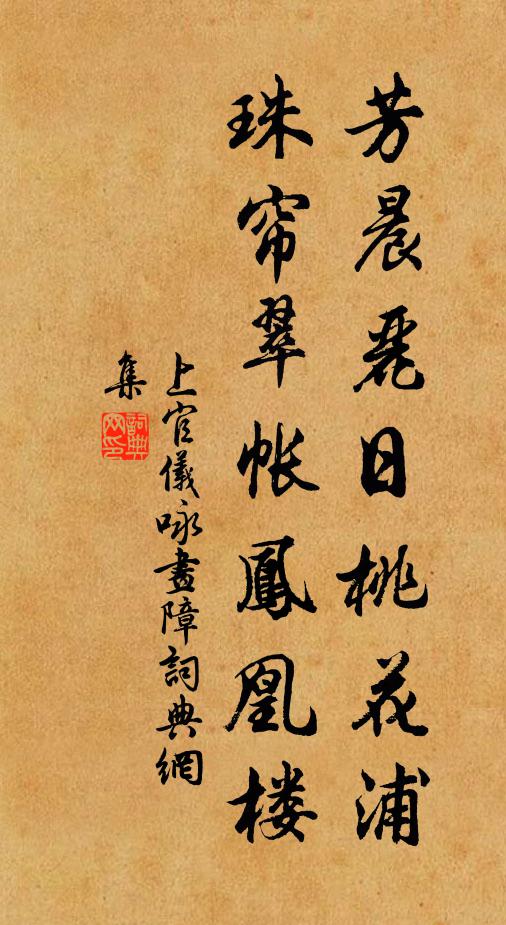 芳晨麗日桃花浦
珠帘翠帐鳳凰楼
上官儀咏畫障詞典網
集
詞典网印